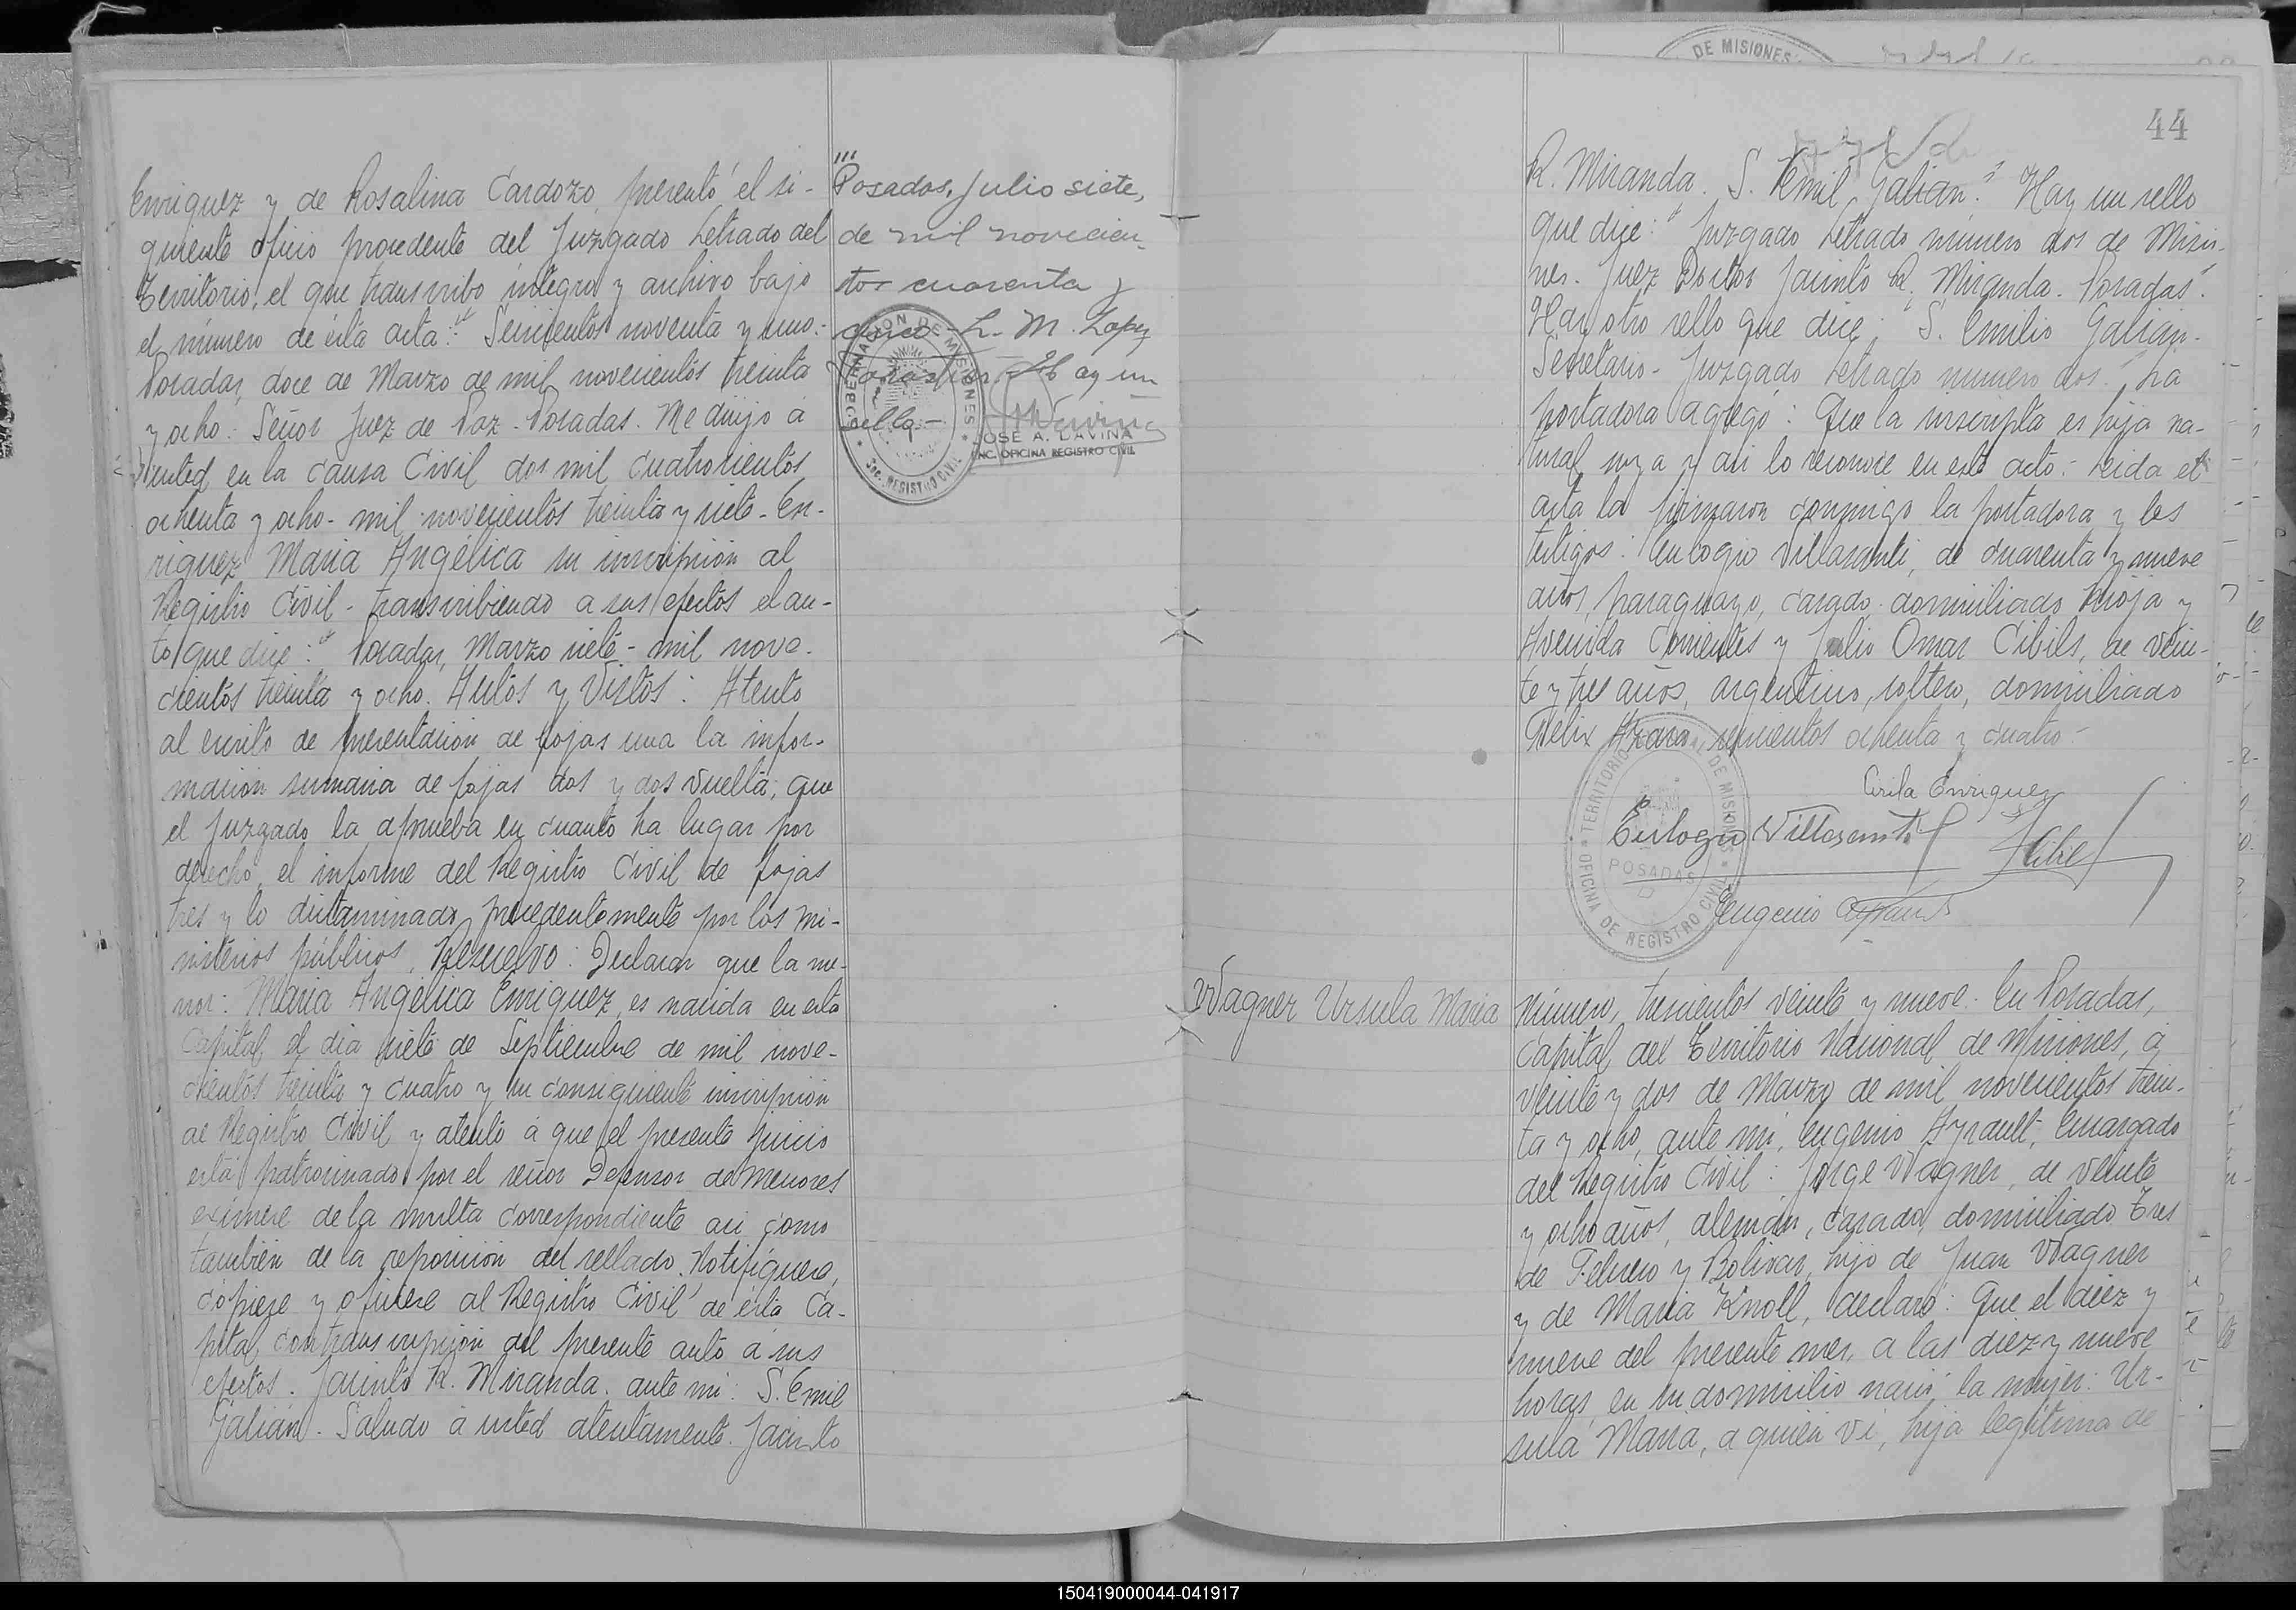 Enriquez y de Rosalina Cardozo, presentó el si-
guiente oficio procedente del Juzgado Letrado del
Territorio, el que transcribo integro y archivo bajo
el número de ésta acta: "Seiscientos noventa y uno.-
Posadas, doce de Marzo de mil novecientos treinta
y ocho. Señor Juez de Paz - Posadas. Me dirijo á
usted en la causa Civil dos mil cuatrocientos
ochenta y ocho - mil novecientos treinta y siete - En-
riquez Maria Angélica su inscripción al
Registro Civil - transcribiendo a sus efectos el au-
to que dice: "Posadas, Marzo siete - mil nove-
cientos treinta y ocho. Autos y Vistos: Atento
al escrito de presentación de fojas una la infor-
mación sumaria de fojas dos y dos vuelta, que
el Juzgado la aprueba en cuanto ha lugar por
derecho, el informe del Registro Civil de fojas
tres y lo dictaminado precedentemente por los Mi-
nisterios públicos, Resuelvo: Declarar que la me-
nor: Maria Angélica Enriquez, es nacida en esta
Capital el dia siete de Septiembre de mil nove-
cientos treinta y cuatro y su consiguiente inscripción
al Registro Civil y atento á que el presente juicio
está patrocinado por el señor Defensor de Menores
eximese de la multa correspondiente asi como
también de la reposición del sellado. Notifiquese,
cópiese y oficiese al Registro Civil de ésta Ca-
pital con transcripción del presente auto á sus
efectos. Jacinto R. Miranda. ante mi: S. Emil
Galián. Saludo á usted atentamente. Jacinto
Posadas, Julio siete,
de mil novecien-
tos cuarenta y
L. M. Lopez
Hay un
sello-
GOBERNACION DE MISIONES
Sec. REGISTRO CIVIL
JOSE A. LAVIÑA
ENC. OFICINA REGISTRO CIVIL
DE MISIONES
44
R. Miranda. S. Emil Galian." Hay un sello
que dice: "Juzgado Letrado número dos de Misio-
nes. Juez Doctor Jacinto R. Miranda. Posadas".
Hay otro sello que dice: "S. Emilio Galián.
Secretario - Juzgado Letrado número dos." La
portadora agregó: Que la inscripta es hija na-
tural suya y asi lo reconoce en este acto.- Leida el
acta la firmaron conmigo la portadora y los
testigos: Eulogio Villasanti, de cuarenta y nueve
años, paraguayo, casado, domiciliado Rioja y
Avenida Corrientes y Julio Omar Cibils, de vein-
te y tres años, argentino, soltero, domiciliado
Félix Azara seiscientos ochenta y cuatro-
Cirila Enriquez
Eulogio Villasanti
Eugenio Ayrault
TERRITORIO NACIONAL DE MISIONES
POSADAS
OFICINA DE REGISTRO CIVIL
Wagner Ursula Maria
Número, trescientos veinte y nueve. En Posadas,
Capital del Territorio Nacional de Misiones, á
veinte y dos de Marzo de mil novecientos trein-
ta y ocho, ante mi, Eugenio Ayrault, Encargado
del Registro Civil: Jorge Wagner, de veinte
y ocho años, alemán, casado, domiciliado Tres
de Febrero y Bolivar, hijo de Juan Wagner
y de Maria Knoll, declaró: Que el diez y
nueve del presente mes, a las diez y nueve
horas, en su domicilio nació la mujer: Ur-
sula Maria, a quien vi, hija legitima de
150419000044-041917